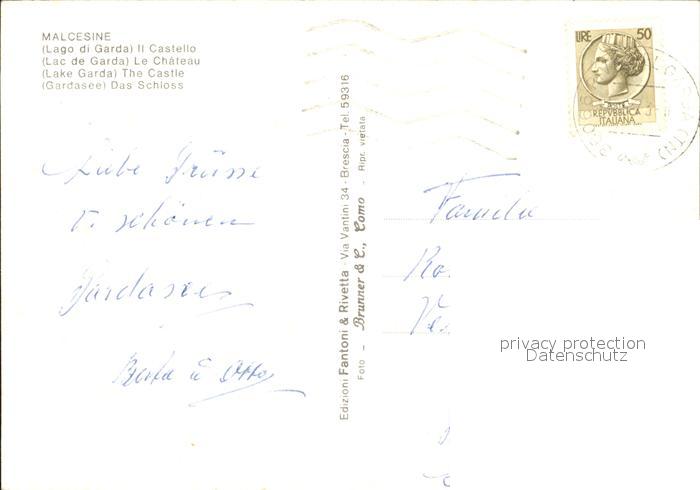 MALCESINE
(Lago di Garda) Il Castello
(Lac de Garda) Le Château
(Lake Garda) The Castle
(Gardasee) Das Schloss
Liebe Grüsse
v. schönen
Gardasee
Berta u Otto
Edizioni Fantoni & Rivetta - Via Vantini 34 - Brescia - Tel. 59316
Foto - Brunner & C., Como - Ripr. vietata
LIRE 50
REPVBBLICA
ITALIANA
Familie
Ro
privacy protection
Datenschutz